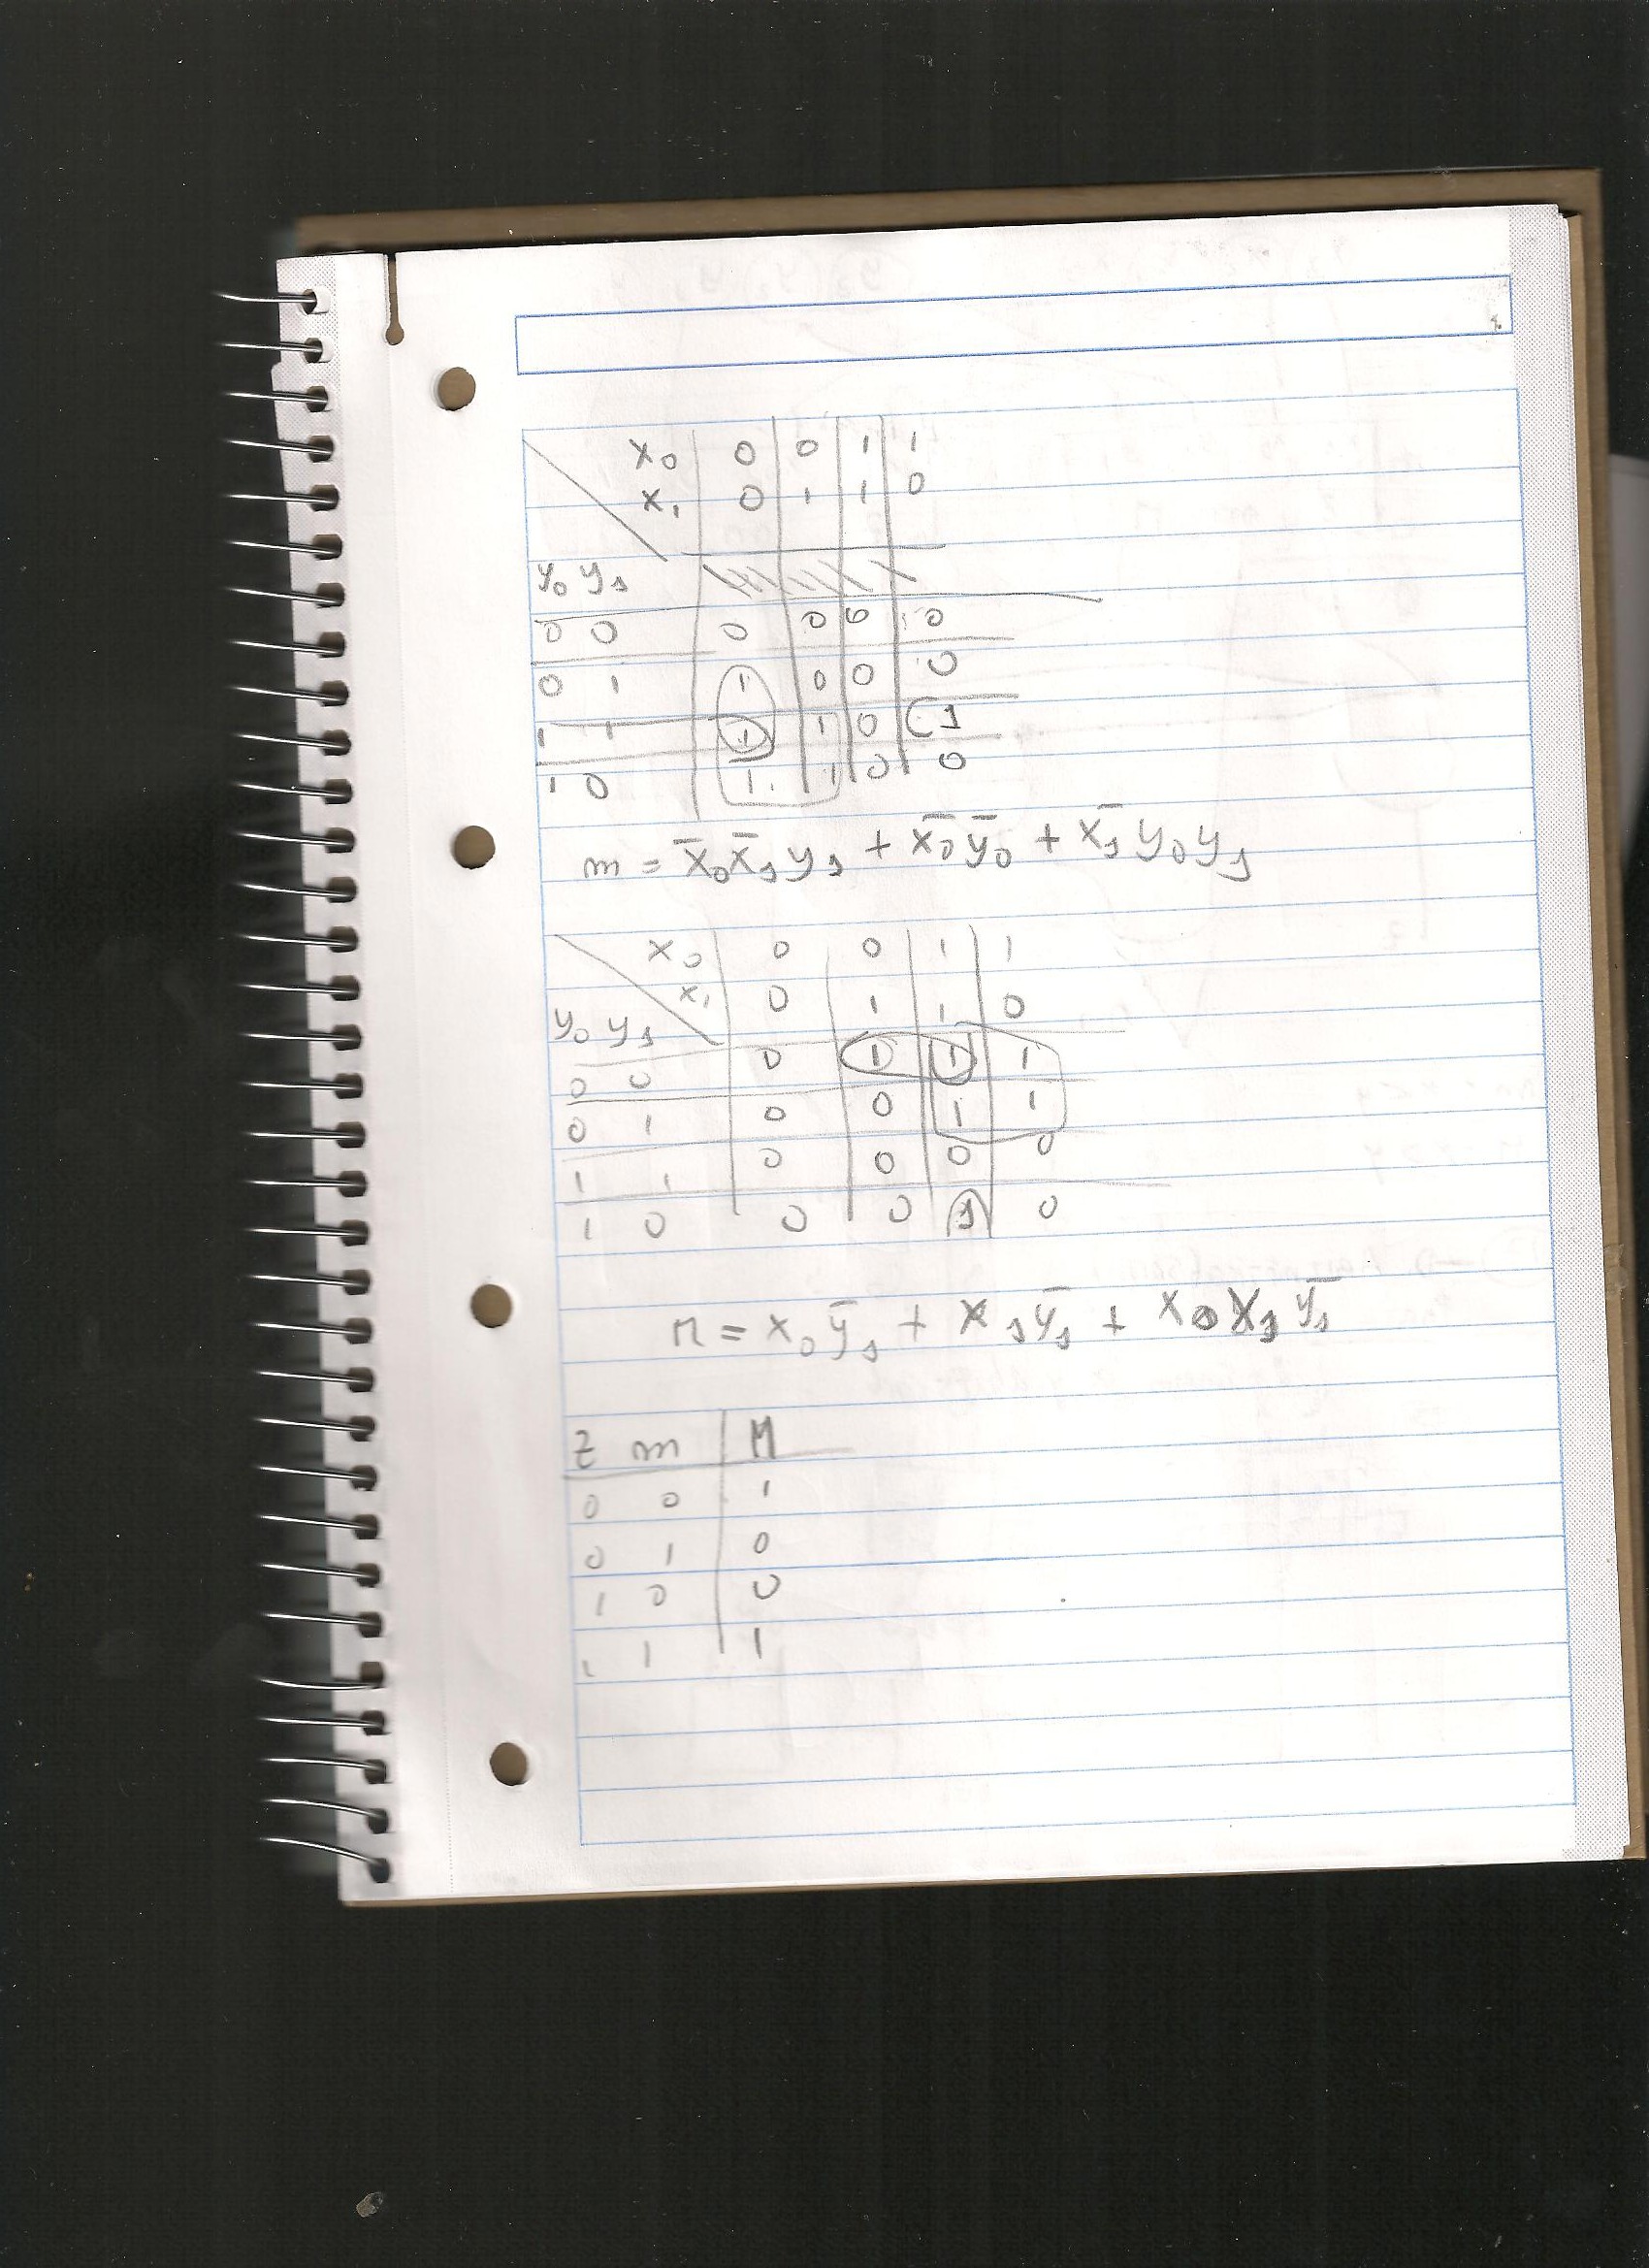 x₀ 0 0 1 1
x₁ 0 1 1 0
y₀ y₁
0 0 0 0 0 0
0 1 1 0 0 0
1 1 1 1 0 1
1 0 1 1 0 0
m = x̅₀x̅₁y₁ + x̅₀y̅₀ + x̅₁y₀y₁
x₀ 0 0 1 1
x₁ 0 1 1 0
y₀ y₁
0 0 0 1 1 1
0 1 0 0 1 1
1 1 0 0 0 0
1 0 0 0 1 0
M = x₀y̅₁ + x₁y̅₁ + x₀x₁y̅₁
z m M
0 0 1
0 1 0
1 0 0
1 1 1